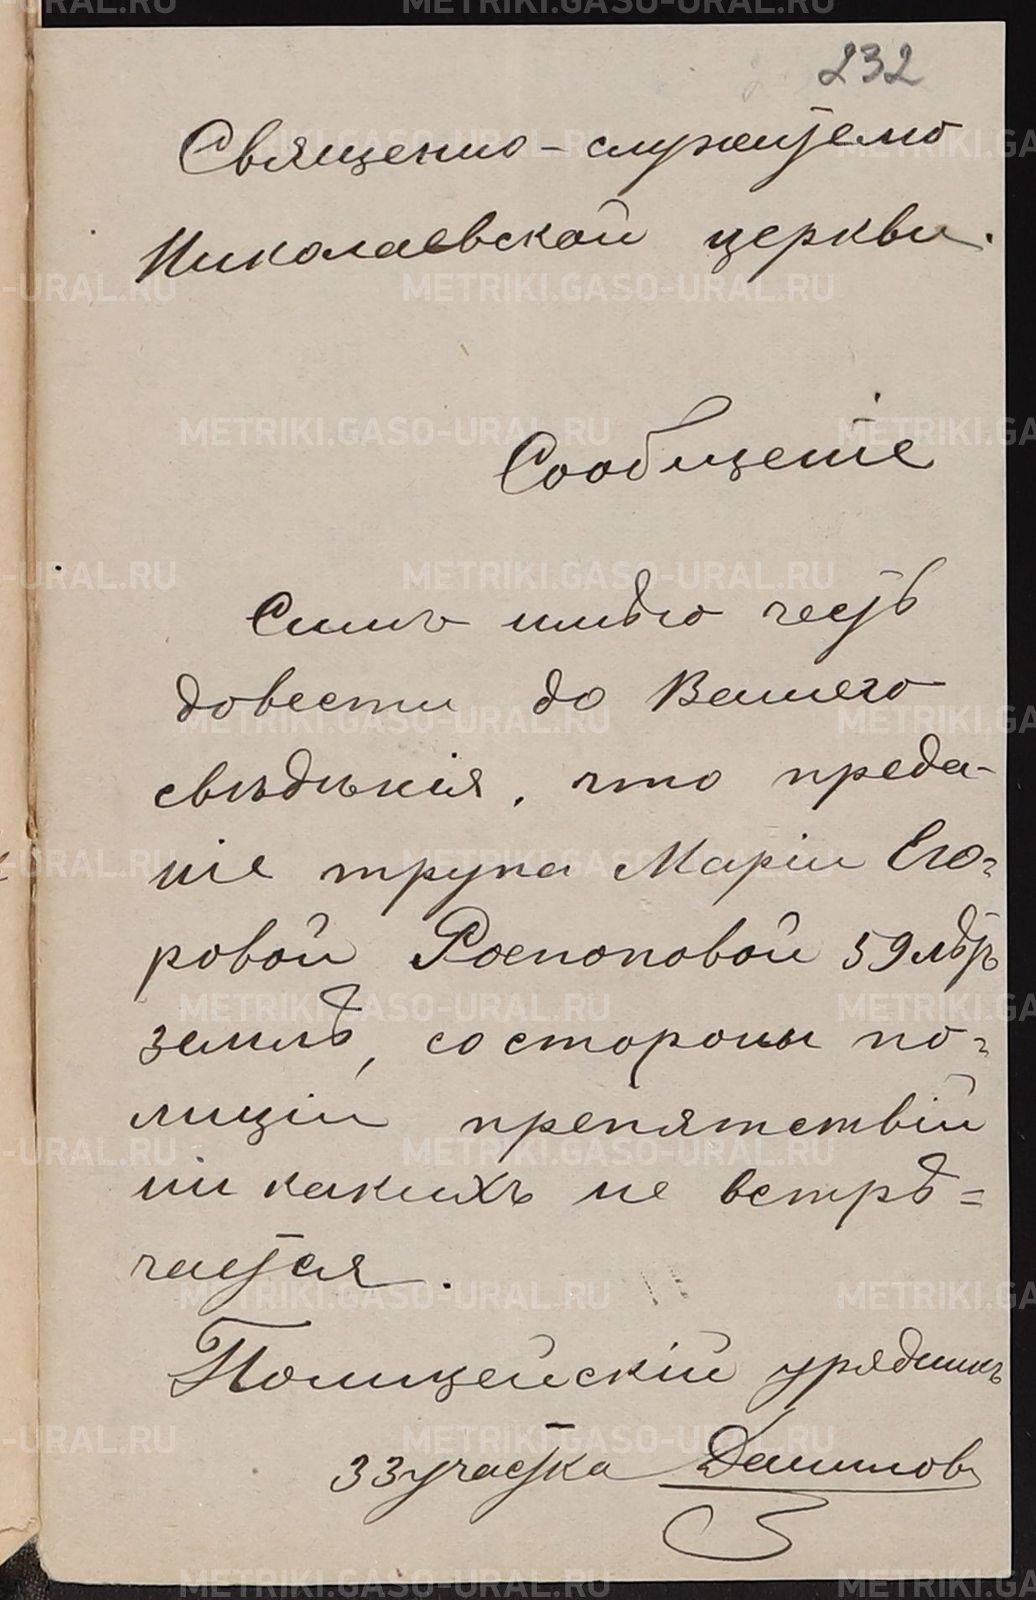 232
Священно-служителю
Николаевской церкви.
Сообщенiе
Симъ имѣю честь
довести до Вашего
свѣдѣнiя, что преда-
нiе трупа Марiи Его-
ровой Роспоповой 59 лѣтъ
землѣ, со стороны по-
лицiи препятствiй
ни какихъ не встрѣ=
чается.
Полицейскiй урядникъ
33 участка Данилов
METRIKI.GASO-URAL.RU